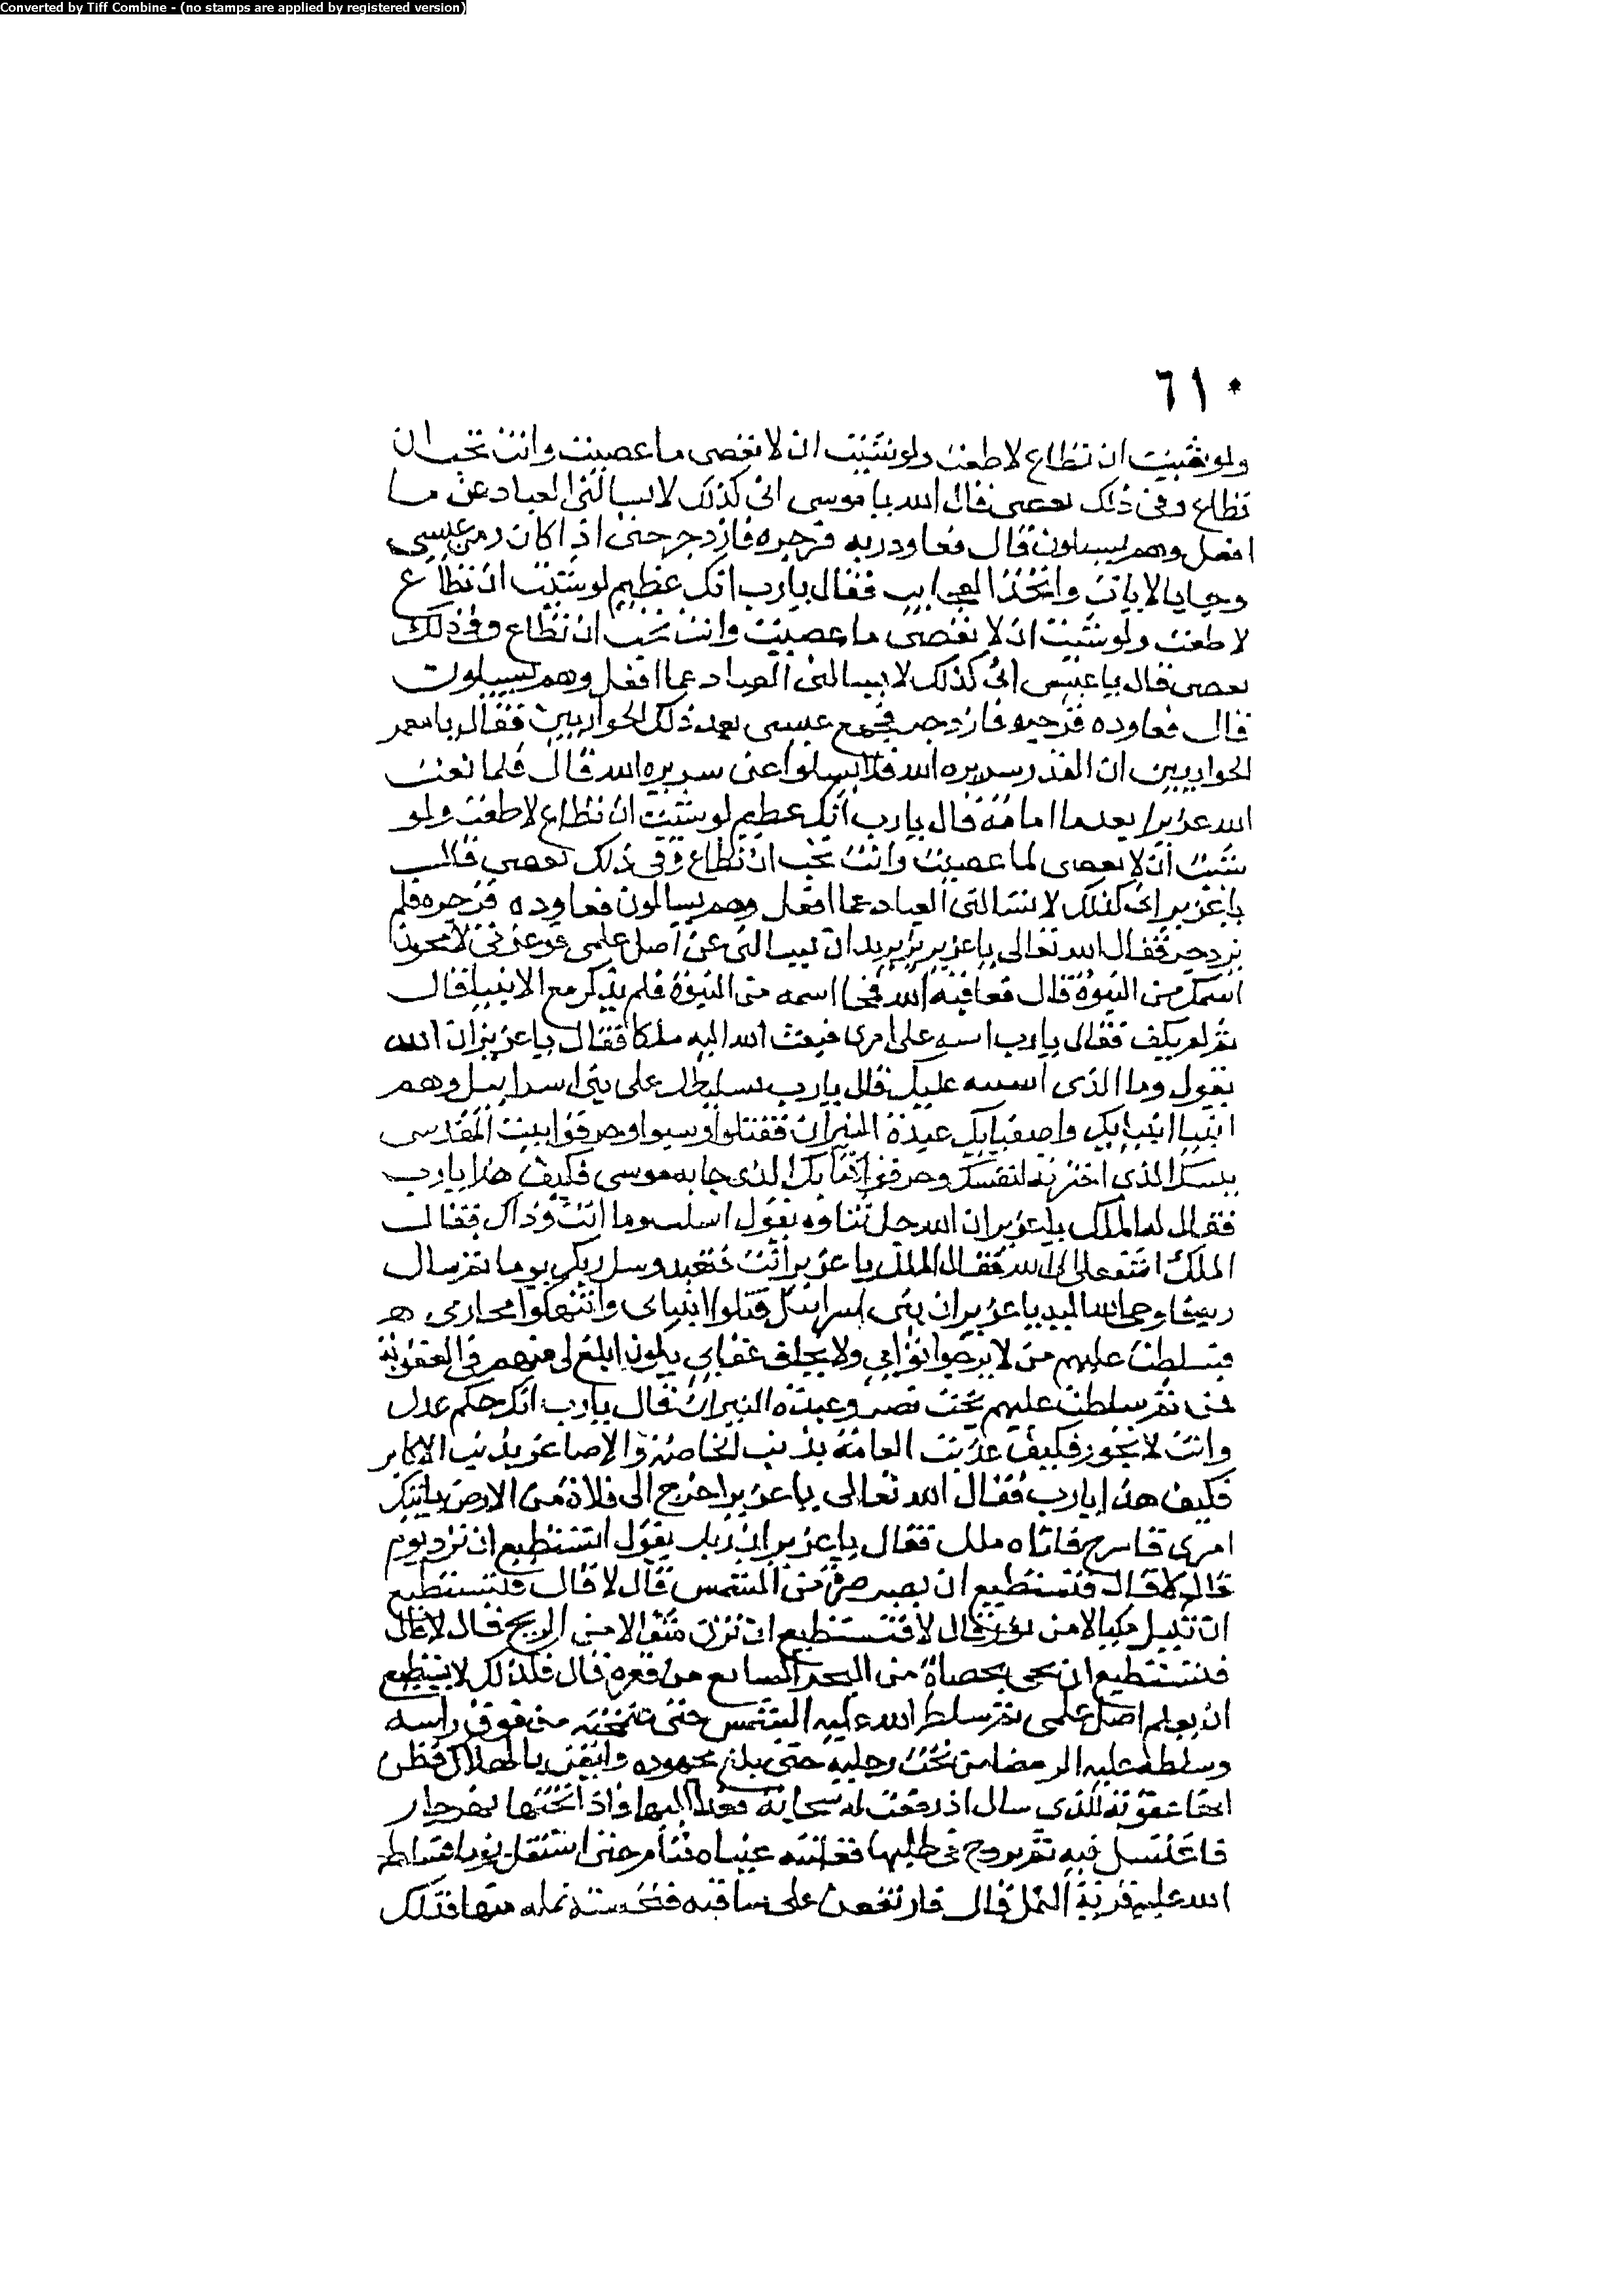 Converted by Tiff Combine - (no stamps are applied by registered version)
٦١٠
ولو شيت ان تطاع لاطعت ولو شيت ان لا تعصى ما عصيت وانت تحب ان
تطاع وفى ذلك تعصى فقال الله يا موسى انى كذلك لا يسالنى العباد عن ما
افعل وهم يسيلون قال فعاود ربه فزجره فازدجر حتى اذا كان زمن عيسى
وجا بالايات واتخذ العجايب فقال يا رب انك عظيم لو شيت ان تطاع
لاطعت ولو شيت ان لا تعصى ما عصيت وانت تحب ان تطاع وفى ذلك
تعصى قال يا عيسى انى كذلك لا يسالنى العباد عما افعل وهم يسيلون
قال فعاوده فزجره فازدجر فجمع عيسى بعد ذلك الحواريين فقال يا معر
الحواريين ان القدر سريره الله فلا تسلوا عن سريره الله قال فلما بعث
الله عزيرا بعدما اماته قال يا رب انك عظيم لو شيت ان تطاع لاطعت ولو
شيت ان لا تعصى لما عصيت وانت تحب ان تطاع وفى ذلك تعصى قال
يا عزير انى كذلك لا يسالنى العباد عما افعل وهم يسالون فعاوده فزجره فلم
يزدجر فقال الله تعالى يا عزير تريد ان تسالنى عن اصل علمى فوعزتى لامحون
اسمك من النبوة قال فعاقبه الله فمحا اسمه من النبوة فلم يذكر مع الانبيا قال
ثم لم يكف فقال يا رب اشتبه على امرى فبعث الله اليه ملكا فقال يا عزير ان الله
يقول وما الذى اشتبه عليك قال يا رب تسليطك على بنى اسرايل وهم
ابنا انبيايك واصفيايك عبدة النيران فقتلوا وسبوا وحرقوا بيت المقدس
بيتك الذى اخترته لنفسك وحرقوا كتابك الذى جا به موسى فكيف هذا يا رب
فقال له الملك يا عزير ان الله جل ثناوه يقول اسكت وما انت وذاك فقال
الملك اشفع لى الى الله فقال الملك يا عزير انت فتعبد وسل ربك يوما ثم سال
ربه فاوحى الله اليه يا عزير ان بنى اسرايل قتلوا انبياى وانتهكوا محارمى
فسلطت عليهم من لا يرجوا ثوابى ولا يخاف عقابى يكون ابلغ لى منهم فى العقوبة
فمن ثم سلطت عليهم بخت نصر وعبدة النيران قال يا رب انك حكم عدل
وانت لا تجور فكيف عذبت العامة بذنب الخاصة والاصاغر بذنب الاكابر
فكيف هذا يا رب فقال الله تعالى يا عزير اخرج الى فلاة من الارض ياتيك
امرى فاسرع فاتاه ملك فقال يا عزير ان ربك يقول اتستطيع ان ترد يوم
قال لا قال فتستطيع ان تصر صرة من الشمس قال لا قال فتستطيع
ان تكيل مكيالا من نور قال لا فتستطيع ان تزن مثقالا من الريح قال لا قال
فتستطيع ان تجى بحصاة من البحر السابع من قعره قال فكذلك لا تستطيع
ان تعلم اصل علمى ثم سلط الله عليه الشمس حتى سخنته من فوق راسه
وسلط عليه الرمضا من تحت رجليه حتى بلغ مجهوده وايقن بالهلاك فظن
انها عقوبة للذى سال اذ رفعت له سحابة فعدا اليها فاذا تحتها نهر جار
فاغتسل فيه ثم تروح فى ظلها فغلبته عيناه فنام حتى استثقل نوما فسلط
الله عليه قرية النمل قال فارتفعن على ساقيه فنخسته نمله منها فتلك